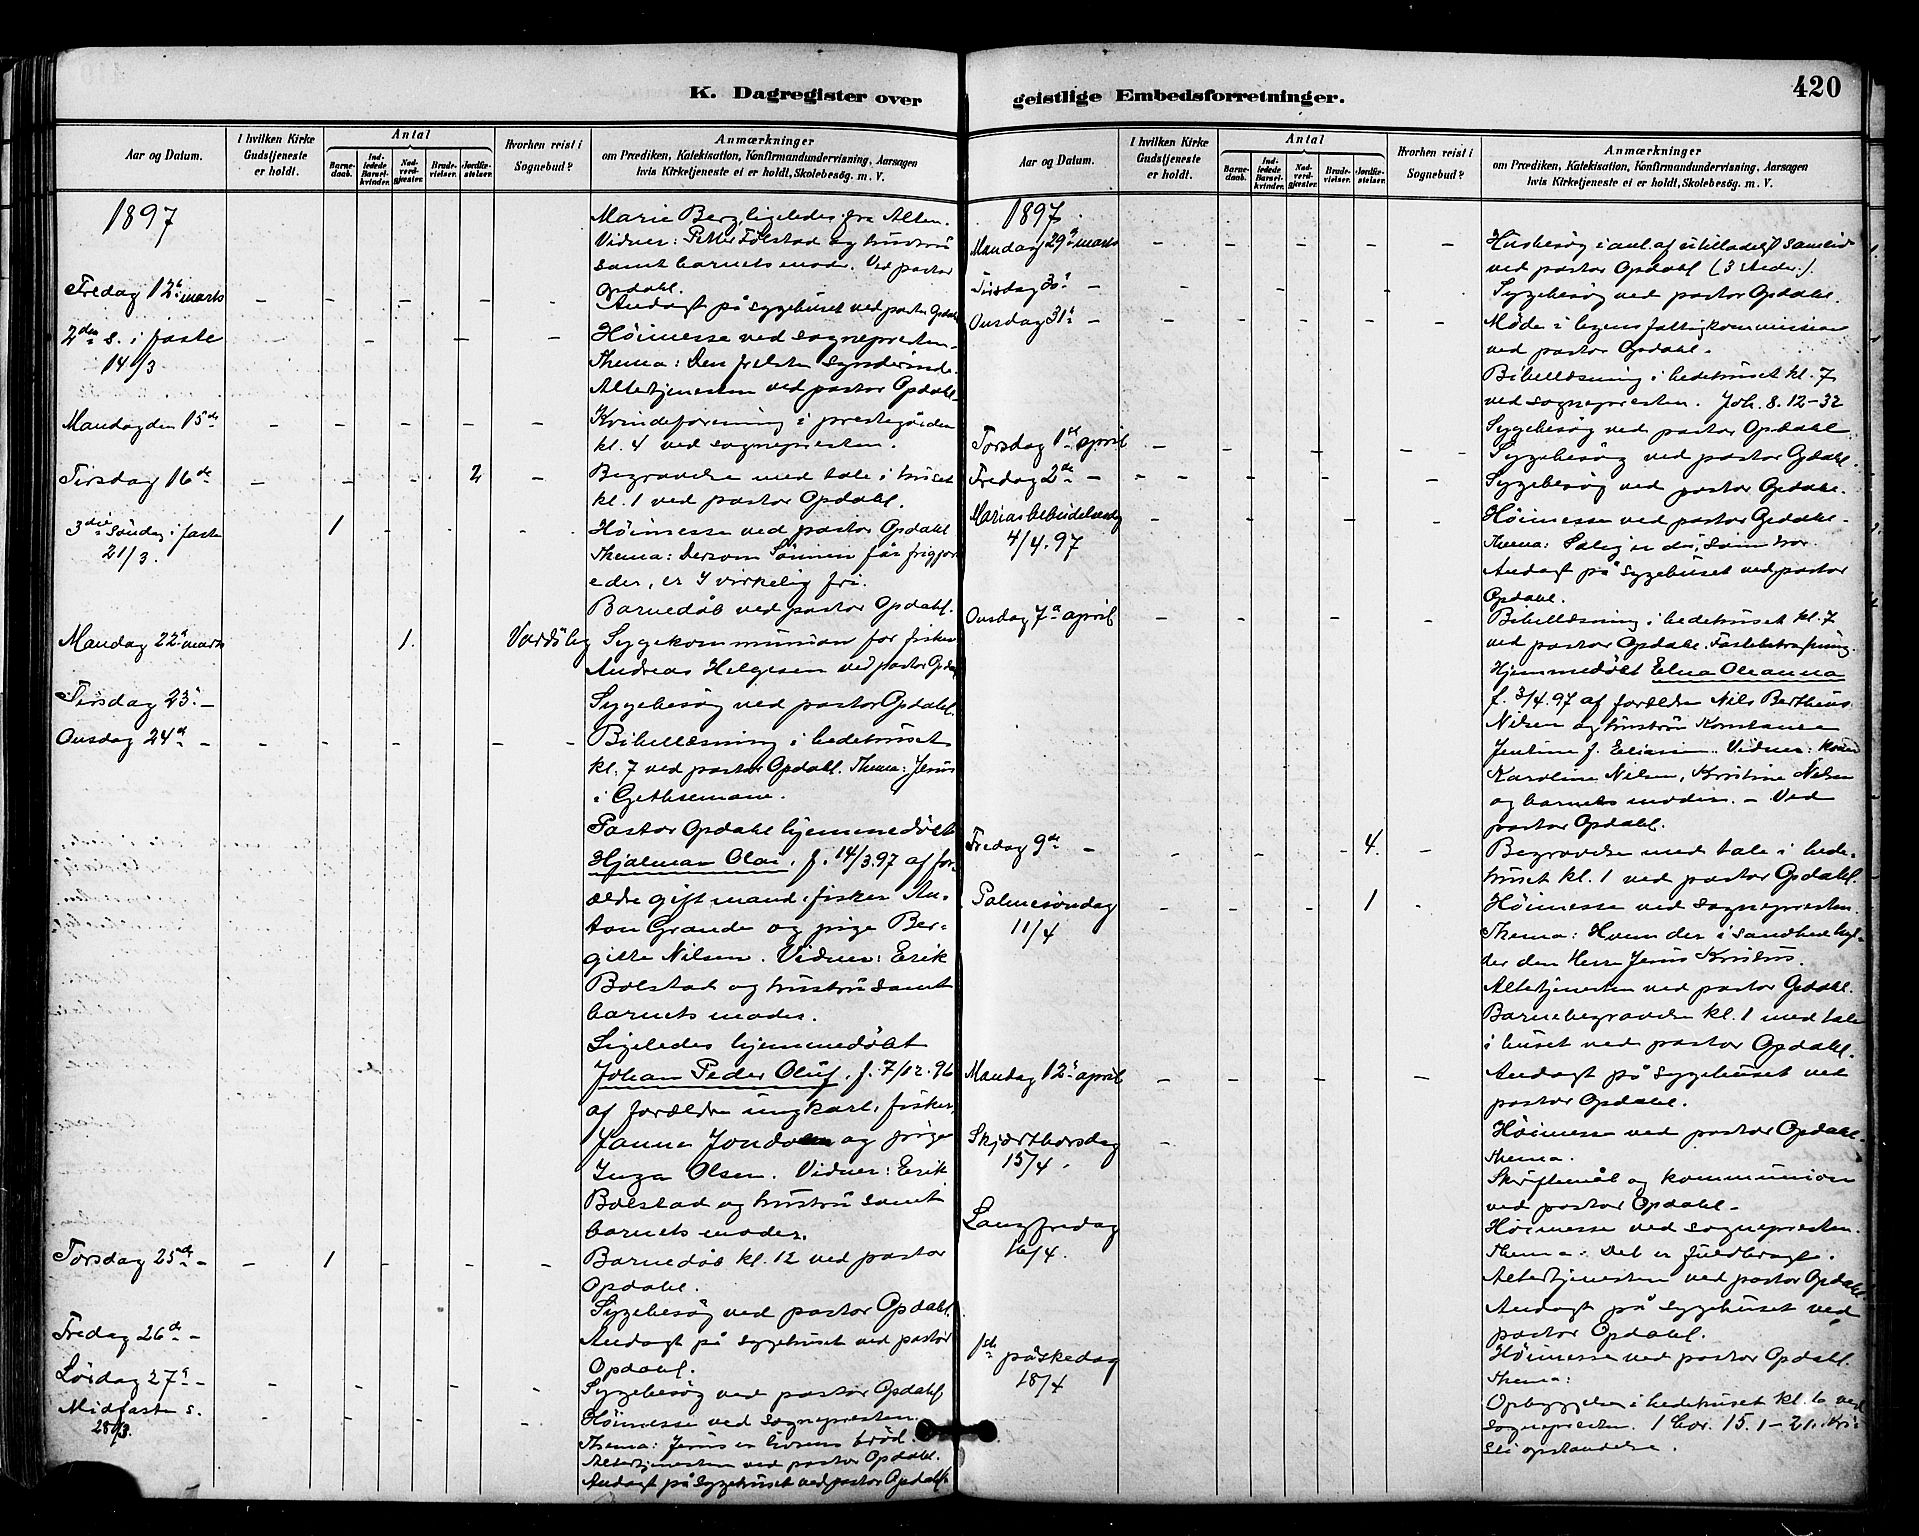 420
K. Dagregister over
geistlige Embedsforretninger.
Aar og Datum.
I hvilken Kirke Gudstjeneste er holdt.
Antal
Barnedaab.
Indledede Barselkvinder.
Nadverdgjester.
Brudevielser.
Jordfæstelser.
Hvorhen reist i Sognebud?
Anmærkninger
om Prædiken, Katekisation, Konfirmandundervisning, Aarsagen
hvis Kirketjeneste ei er holdt, Skolebesøg. m. V.
1897
Marie Berg ligeledes fra Alten.
Vidner: Petter Folstad og hustru
samt barnets moder. Ved pastor
Opdahl.
Fredag 12te marts - - - - - -
Andagt på sygehuset ved pastor Opdahl
2den s. i faste
14/3
Höimesse ved sognepresten.
Thema: Den frelste synderinde.
Altertjenesten ved pastor Opdahl.
Mandag den 15de - - - - - -
Kvindeforening i prestegården
kl. 4 ved sognepresten.
Tirsdag 16de - - - - 2 -
Begravelse med tale i huset
kl. 1 ved pastor Opdahl.
3die söndag i faste
21/3.
1
Höimesse ved pastor Opdahl
Thema: Dersom Sönnen får frigjort
eder, er I virkelig fri.
Barnedöb ved pastor Opdahl.
Mandag 22de marts
1.
Sygekommunion for fisker
Andreas Helgesen ved pastor Opdahl
Tirsdag 23 -
Sygebesög ved pastor Opdahl.
Onsdag 24de - - - - - -
Bibellæsning i bedehuset
kl. 7 ved pastor Opdahl. Thema: Jesus
i Gethsemane.
Pastor Opdahl hjemmedöbt
Hjalmar Olai, f. 14/3.97 af for-
ældre gift mand, fisker An-
ton Grande og pige Ber-
gitte Nilsen. Vidner: Erik
Bolstad og hustru samt
barnets moder.
Ligeledes hjemmedöbt
Johan Peder Oluf, f. 7/12.96
af forældre ungkarl, fisker
og pige
Inga Olsen. Vidner: Erik
Bolstad og hustru samt
barnets moder.
Torsdag 25de - - 1 - - -
Barnedöb kl. 12 ved pastor
Opdahl.
Sygebesög ved pastor Opdahl.
Fredag 26de -
Andagt på sygehuset ved pastor
Opdahl.
Lördag 27de - - - - -
Sygebesög ved pastor Opdahl
Midfaste s.
28/3.
Höimesse ved sognepresten.
Thema: Jesus er livsens bröd.
Altertjenesten ved pastor Opdahl.
Andagt på sygehuset ved pastor Opdahl.
Aar og Datum.
I hvilken Kirke Gudstjeneste er holdt.
Antal
Barnedaab.
Indledede Barselkvinder.
Nadverdgjester.
Brudevielser.
Jordfæstelser.
Hvorhen reist i Sognebud?
Anmærkninger
om Prædiken, Katekisation, Konfirmandundervisning, Aarsagen
hvis Kirketjeneste ei er holdt, Skolebesøg. m. V.
1897.
Mandag 29de marts - - - - - - -
Husbesög i anl. af utilladeligt samliv
ved pastor Opdahl (3 steder).
Tirsdag 30 -
Sygebesög ved pastor Opdahl.
Onsdag 31 - - - - - -
Möde i byens fattigkommission
ved pastor Opdahl.
Bibellæsning i bedehuset kl. 7
ved sognepresten. Joh. 8. 12-32
Sygebesög ved pastor Opdahl
Torsdag 1ste april - - - - -
Sygebesög ved pastor Opdahl.
Fredag 2de - - - - - -
Sygebesög ved pastor Opdahl.
Marias bebudelsesdag
4/4.97
Höimesse ved pastor Opdahl.
Thema: Salig er du, som tror.
Andagt på sygehuset ved pastor
Opdahl.
Onsdag 7de april - - - - - -
Bibellæsning i bedehuset kl. 7
ved pastor Opdahl. Fastebetragtning.
Hjemmedöbt Elna Oleanna
f. 3/4.97 af forældre Nils Bertheus
Nilsen og hustru Konstanse
Jentine f. Eliasen. Vidner: kone
Karoline Nilsen, Kristine Nilsen
og barnets moder. - Ved
pastor Opdahl.
Fredag 9de - - - - - 4. -
Begravelse med tale i bede-
huset kl. 1 ved pastor Opdahl.
Palmesöndag
11/4
1
Höimesse ved sognepresten.
Thema: Hvem der i sandhed hyl-
der den Herre Jesus Kristus.
Altertjenesten ved pastor Opdahl.
Barnebegravelse kl. 1 med tale
i huset ved pastor Opdahl.
Mandag 12te april - - - - - -
Andagt på sygehuset ved
pastor Opdahl.
Skjærthorsdag
15/4.
Höimesse ved pastor Opdahl.
Thema.
Skriftemål og kommunion
ved pastor Opdahl.
Langfredag
16/4.
Höimesse ved sognepresten.
Thema: Det er fuldbragt.
Altertjenesten ved pastor Opdahl.
Andagt på sygehuset ved
pastor Opdahl.
1ste påskedag
18/4
Höimesse ved pastor Opdahl.
Thema:
Opbyggelse i bedehuset kl. 6 ved
sognepresten. 1 Cor. 15. 1-21. Kri-
sti opstandelse.